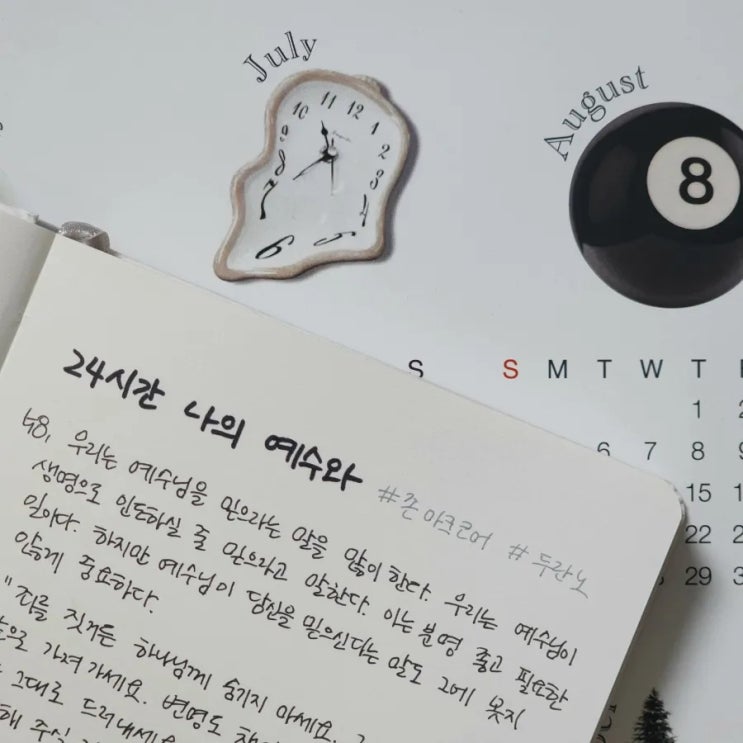 July
August
10 11 12 1 2 3 4 5 6 7 8 9
8
S
S M T W T
1
6 7 8
15
22
29
24시간 나의 예수와
#존 마크 코머 #두란노
48. 우리는 예수님을 믿으라는 말을 많이 한다. 우리는 예수님이
생명으로 인도하실 줄 믿으라고 말한다. 이는 분명 좋고 필요한
일이다. 하지만 예수님이 당신을 믿으신다는 말도 그에 못지
않게 중요하다.
"죄를 짓거든 하나님께 숨기지 마세요.
가져가세요. 변명도
그대로 드러내세요